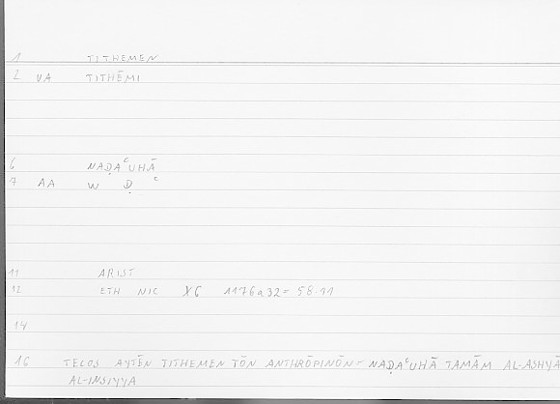 1 TITHEMEN
2 VA TITHĒMI
6 NAḌAʿUHĀ
7 AA W Ḍ ʿ
11 ARIST
12 ETH NIC X6 1176a32 = 58.11
14
16 TELOS AYTĒN TITHEMEN TŌN ANTHRŌPINŌN = NAḌAʿUHĀ TAMĀM AL-ASHYĀ
AL-INSIYYA